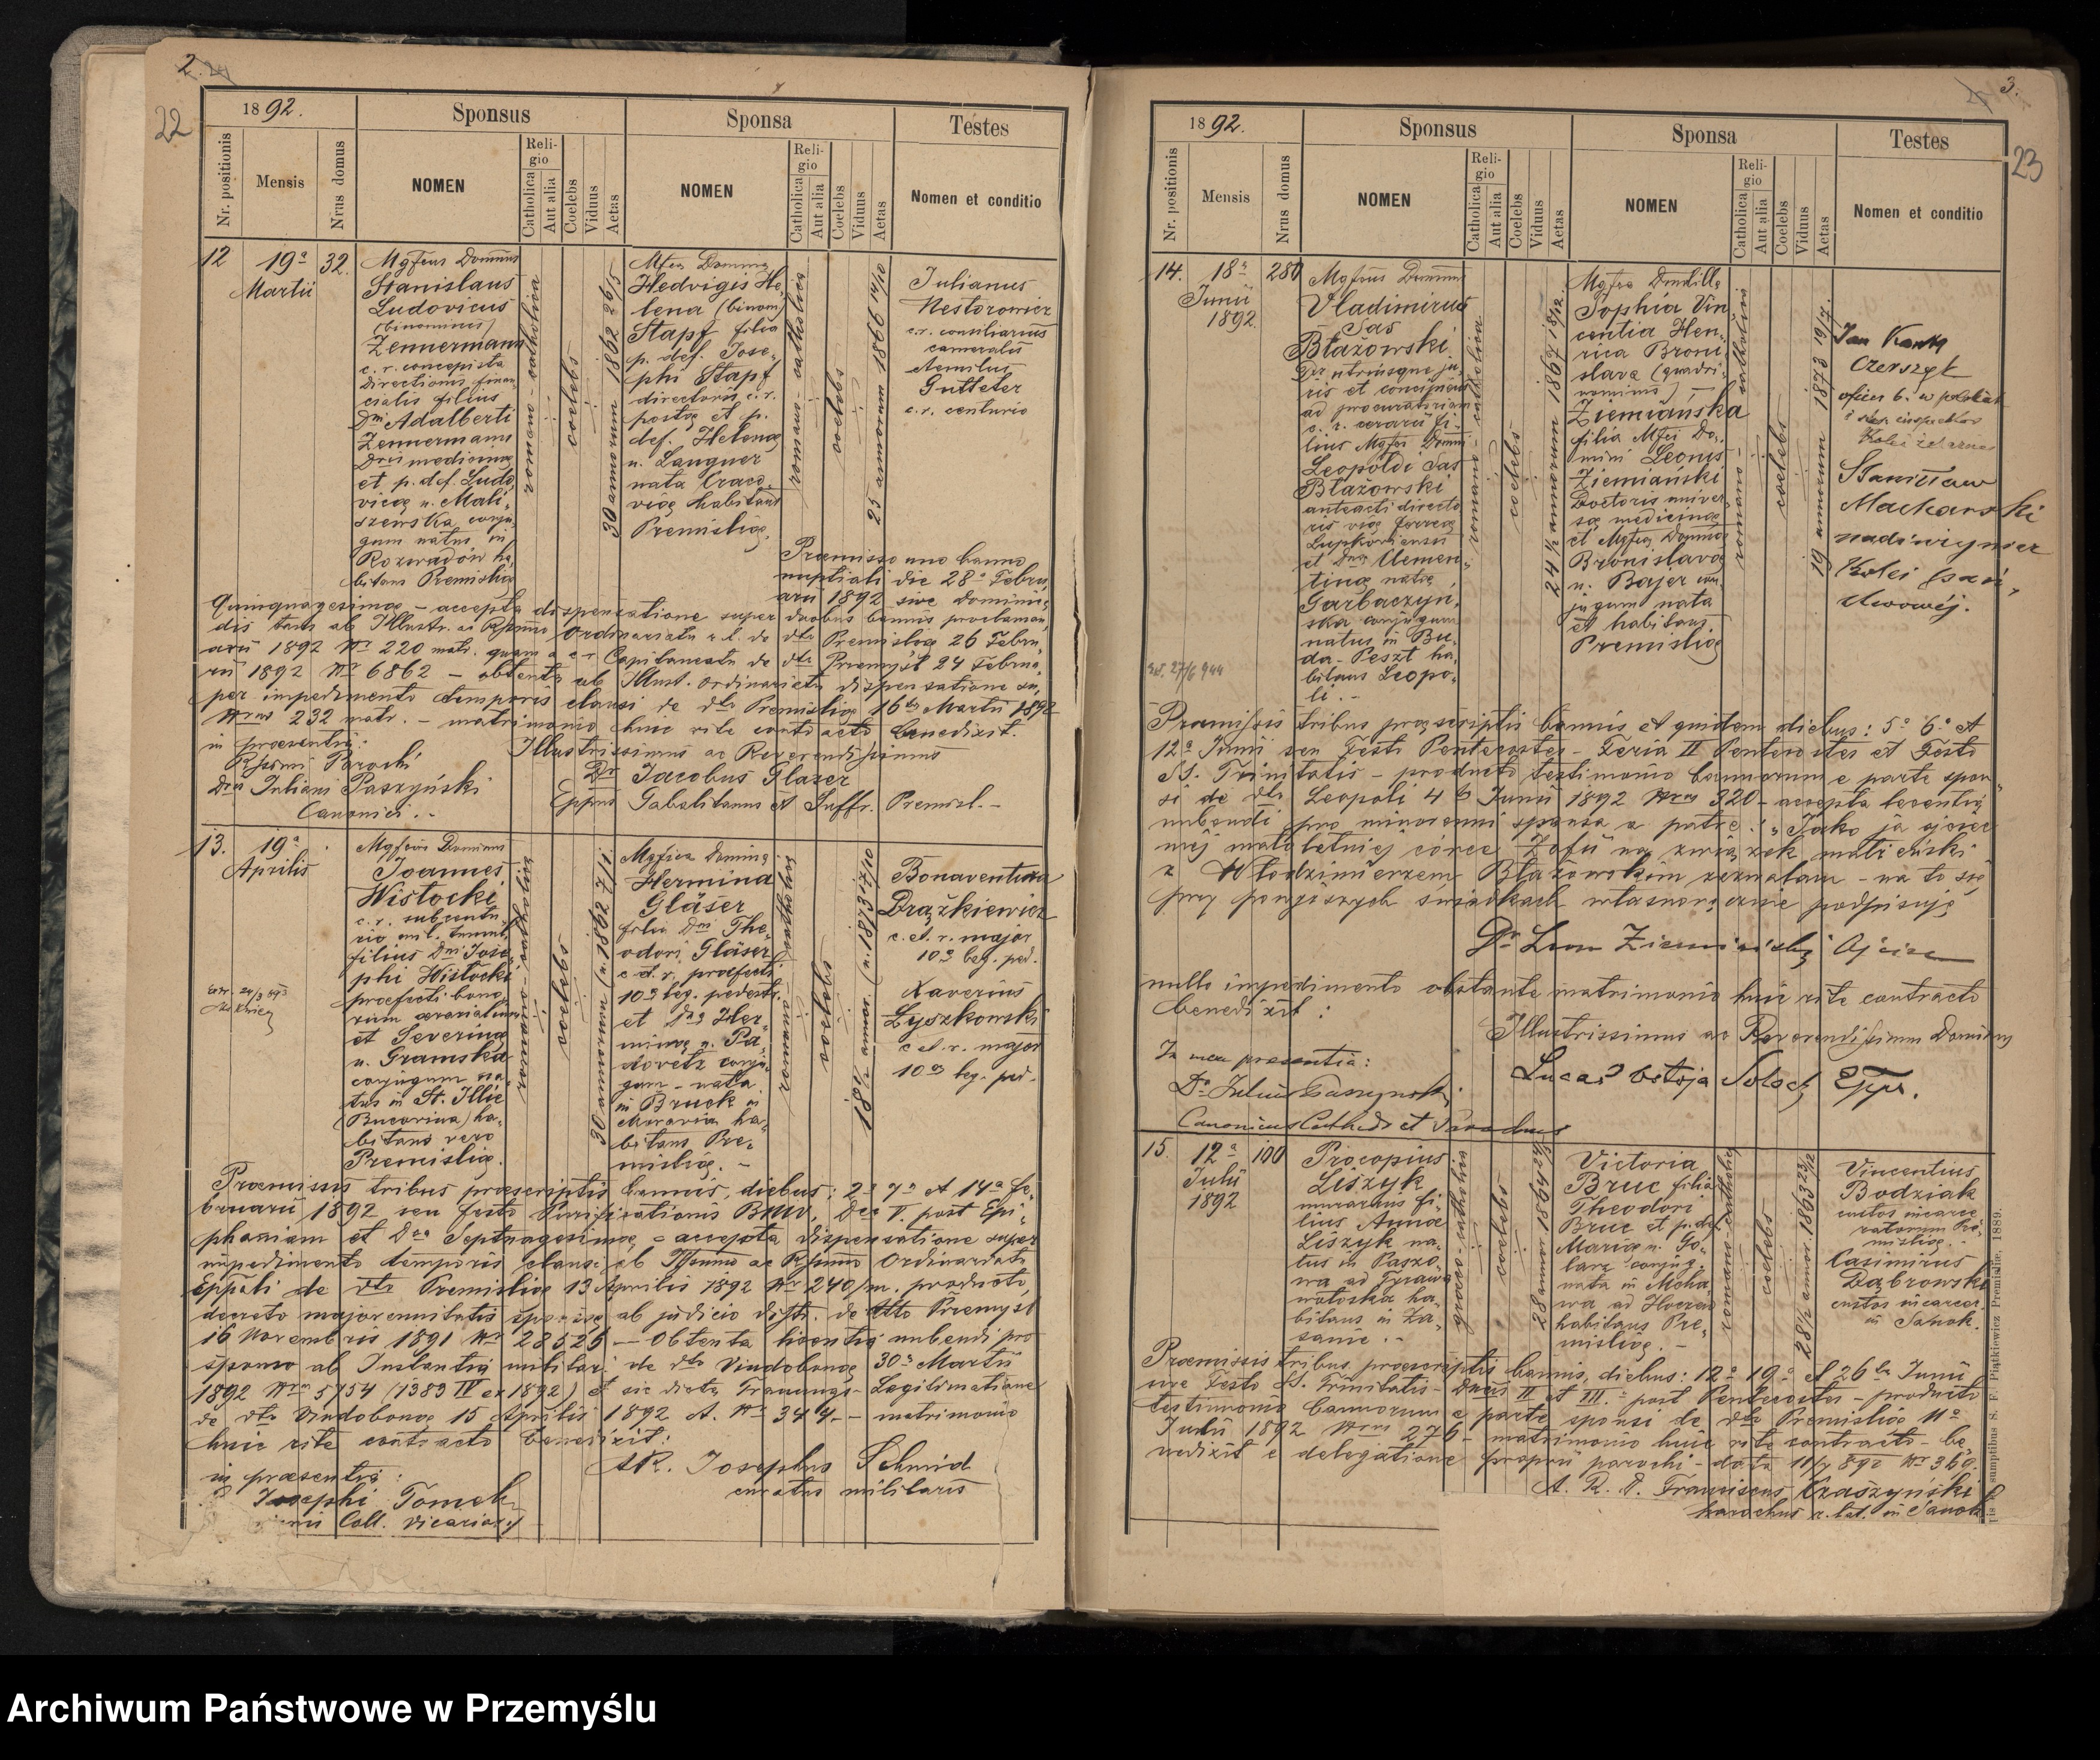 2.
22
1892.
Sponsus
Sponsa
Testes
Nr. positionis
Mensis
Nrus domus
NOMEN
Religio
Catholica
Aut alia
Coelebs
Viduus
Aetas
NOMEN
Religio
Catholica
Aut alia
Coelebs
Viduus
Aetas
Nomen et conditio
12
19a
Martii
32.
Mgfcus Dominus
Stanislaus
Ludovicus
(binominus)
Zennermann
c. r. concepista
Directionis finan-
cialis filius
Dni Adalberti
Zennermann
Dris medicinae
et p. def. Ludo-
vicae n. Mali-
szewska conju-
gum natus in
Rozwadów ha-
bitans Premisliae
romano-catholica
coelebs
30 annorum 1892
Hedvigis He-
lena (binom)
Stapf filia
p. def. Jose-
phi Stapf
directoris c. r.
postae et p.
def. Helenae
n. Languer
nata Craco-
viae habitans
Premisliae.
romano-catholica
coelebs
25 annorum 1866 14/10
Julianus
Nestorowicz
c. r. consiliarius
cameralis
Aemilus
Gutteter
c. r. centurio
Praemisso uno banno
nuptiali die 28a Febru-
arii 1892 sive Dominica
Quinquagesimae - accepta dispensatione super duobus bannis proclaman-
dis tam ab Illustr. ac Rssimo Ordinariatu r. l. de dto Premisliae 26 Febru-
arii 1892 Nr 220 matr. quam a c. r. Capitaneatu de dto Przemyśl 24 Februa-
rii 1892 Nr 6862 - obtenta ab Illust. Ordinariatu dispensatione su-
per impedimento temporis clausi de dto Premisliae 16ta Martii 1892
Nrus 232 matr. - matrimonio huic rite contracto benedixit.
in praesentia:
Illustrissimus ac Reverendissimus
Rssimi Parochi
Dr Jacobus Glazer
Dris Juliani Paszyński
Eppus Gabalitanus et Suffr. Premisl. -
Canonici. -
13.
19a
Aprilis
Mgfcus Dominus
Joannes
Wisłocki
c. r. subcentu-
filius Dni Jose-
phi Wisłocki
praefecti bono-
rum aerarialium
et Severinae
n. Gramska
conjugum na-
tus in St. Illie
(Bucovina) ha-
bitans vero
Premisliae.
coelebs
30 annorum (n. 1862 7/1.
Hermina
Gläser
filia Dni The-
odori Gläser
c. et. r. praefecti
10a leg. pedestr.
et Dnae Her-
minae n. Pa-
dovetz conju-
gum - nata
in Bruck in
Moravia ha-
bitans Pre-
misliae. -
romano-catholica
coelebs
18 1/2 annor. (n. 1873 17/10
Bonaventura
Drążkiewicz
c. et. r. major
10a leg. ped.
Xaverius
Zyszkowski
c. et. r. major
10a leg. ped.
Praemissis tribus praescriptis bannis, diebus: 2a 7a et 14a fe-
bruarii 1892 seu festo Purificationis BMV, Dca V. post Epi-
phaniam et Dca Septuagesimae - accepta dispensatione super
impedimento temporis clausi ab Illsmo ac Rssimo Ordinariatu
Eppali de dto Premisliae 13 Aprilis 1892 Nr 240/m. producto
decreto majorennitatis sponsae ab judicio distr. de dto Przemyśl
16 Novembris 1891 Nr 28526 - Obtenta licentia nubendi pro
sponso ab Instantia militari de dto Vindobonae 30a Martii
1892 Nrus 5754 (1383 IV ex 1892) et sic dicta Trauungs-Legitimatione
de dto Vindobonae 15 Aprilis 1892 A. Nr 344 - matrimonio
huic rite contracto benedixit:
in praesentia:
AR. Josephus Schmid
Josephi Tomek
curatus militaris
Coll. Vicarior.
3.
23
1892.
Sponsus
Sponsa
Testes
Nr. positionis
Mensis
Nrus domus
NOMEN
Religio
Catholica
Aut alia
Coelebs
Viduus
Aetas
NOMEN
Religio
Catholica
Aut alia
Coelebs
Viduus
Aetas
Nomen et conditio
14.
18a
Junii
1892.
280
Mgfcus Dominus
Vladimirus
Sas
Błażowski
Dr utriusque ju-
ris et concipiens
ad procuratoriam
c. r. aerarii fi-
lius Mgfci Domini
Leopoldi Sas
Błażowski
anteacti directo-
ris viae ferreae
Lupkoviensis
et Dnae Clemen-
tinae natae
Garbaczyn-
ska conjugum
natus in Bu-
da-Peszt ha-
bitans Leopo-
li. -
romano-catholica
coelebs
24 1/2 annorum 1867 18/12.
Sophia Vin
centia Hen-
rica Broni-
slava (quadri-
nominis) -
Ziemiańska
filia Mgfci Do-
mini Leonis
Ziemiański
Doctoris univer-
sae medicinae
et Mgfcae Dominae
Bronislavae
n. Bajer con-
jugum nata
et habitans
Premisliae
romano-catholica
coelebs
19 annorum 1873 19/7.
Jan Kanty
Czerszyk
Kolei żelaznej
Stanisław
Mackowski
nadinżynier
Kolei
Lwowej.
Praemissis tribus praescriptis bannis et quidem diebus: 5a 6a et
12a Junii seu Festi Pentecostes - Feria II Pentecostes et Festo
SS. Trinitatis - producto testimonio bannorum e parte spon-
si de dto Leopoli 4ta Junii 1892 Nrus 320 - accepta licentia
nubendi pro minorenni sponsa a patre: "Jako ja ojciec
mej małoletniej córce Zofii na związek małżeński
z Włodzimierzem Błażowskim zezwalam - na to się
przy poniższych świadkach własnoręcznie podpisuję
Dr Leon Ziemiański Ojciec
nullo impedimento obstante matrimonio huic rite contracto
benedixit:
Illustrissimus ac Reverendissimus Dominus
In mea presentia:
Lucas Ostoja Solecki Eppus.
Dr Julius Paszynski
Canonicus Cathedr et Parochus
15.
12a
Julii
1892
100
Procopius
Liszyk
murarius fi-
lius Annae
Liszyk na-
tus in Paszo-
wa ad Tyrawa
wołoska ha-
bitans in Za-
sanie. -
graeco-catholica
coelebs
Victoria
Bruc filia
Theodori
Bruc et p. def.
Mariae n. Go-
larz conjug.
nata in Mokra-
habitans Pre-
misliae. -
romano-catholica
coelebs
28 1/2 annor. 1863 23/12
Vincentius
Bodziak
custos incarce-
ratorum Pre-
misliae. -
Casimirus
Dąbrowski
custos incarcer.
in Sanok.
Praemissis tribus praescriptis bannis, diebus: 12a 19a et 26ta Junii
sive Festo SS. Trinitatis - Dncis II et III. post Pentecostes - producto
testimonio bannorum e parte sponsi de dto Premisliae 11a
Julii 1892 Nrus 276 - matrimonio huic rite contracto - be-
nedixit e delegatione proprii parochi - data 11/7 892 Nr 360.
A. R. D. Franciscus Kraszyński
parochus r. lat. in Sanok
sumptibus S. F. Piątkiewicz Premisliae, 1889.
Archiwum Państwowe w Przemyślu